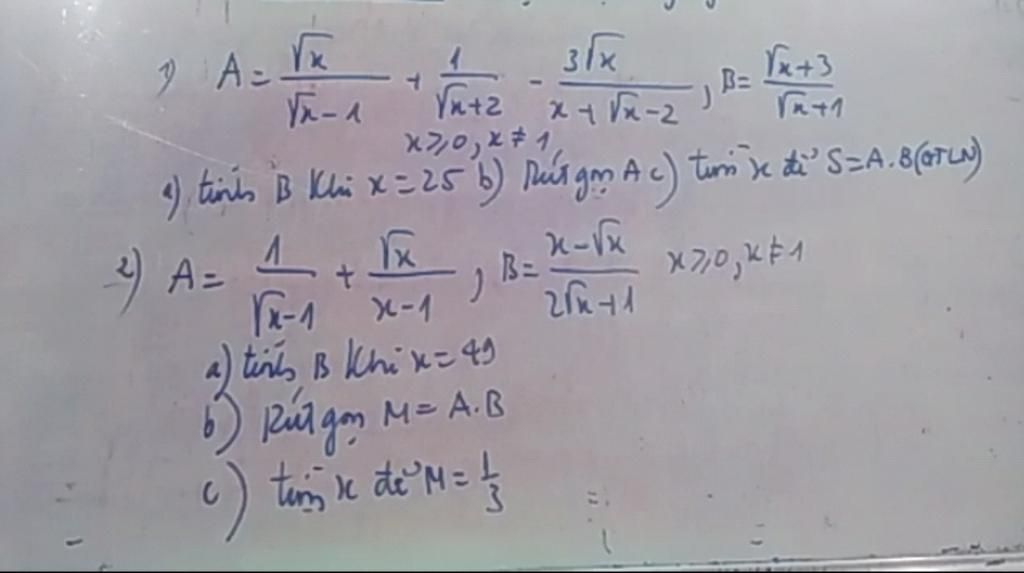 1) A = √x/(√x-1) + 1/(√x+2) - 3√x/(x+√x-2), B = (√x+3)/(√x+1)
x ≥ 0, x ≠ 1
a) tính B khi x = 25 b) Rút gọn A c) tìm x để S = A.B (GTLN)
2) A = 1/(√x-1) + √x/(x-1), B = (x-√x)/(2√x+1) x ≥ 0, x ≠ 1
a) tính B khi x = 49
b) Rút gọn M = A.B
c) tìm x để M = 1/3